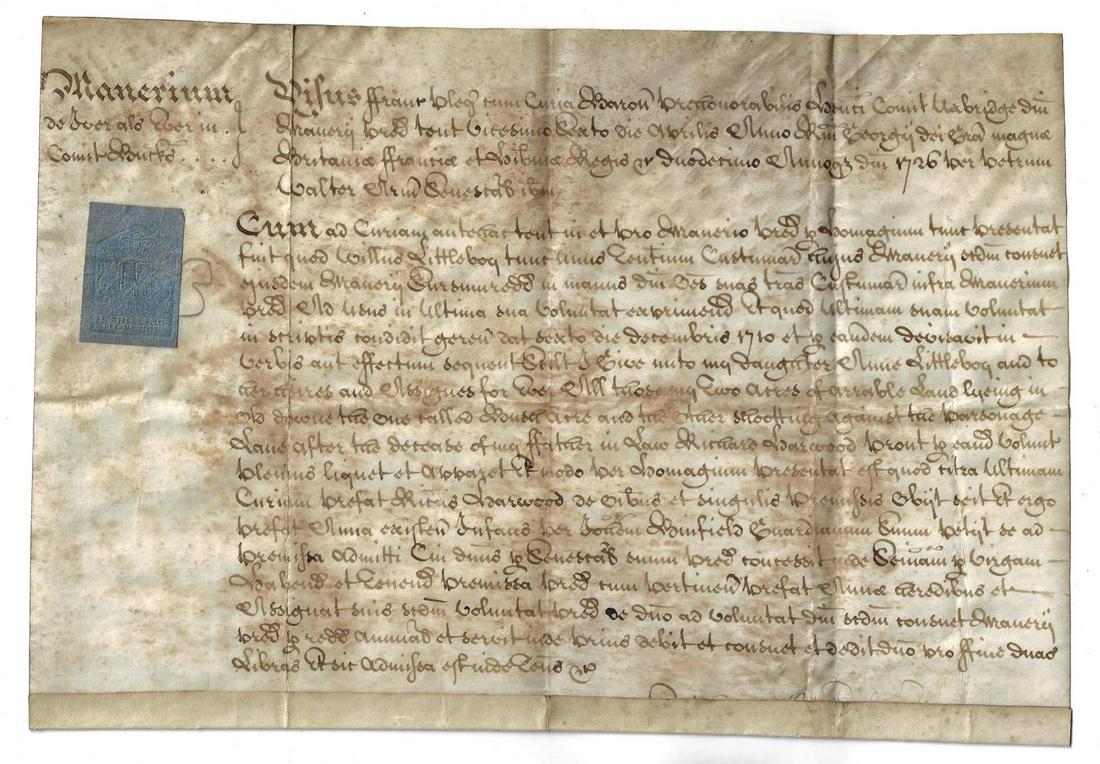 Manerium
de Iver als Ever in
Comit Bucks
Visus ffranc Pleg cum Curia Baron Prehonorabilis Henrici Comit Uxbridge Dni
Manerij pred tent vicesimo sexto die Aprilis Anno Rni Georgij dei Gra magnae
Britaniae ffranciae et Hibniae Regis &c duodecimo Annoq Dni 1726 per Petrum
Walter Arm Senescall ibm
Cum ad Curiam antehac tent in et pro Manerio pred p Homagium tunc presentat
fuit quod Willus Littleboy tunc unus Tentium Custumar hujus Manerij scdm consuet
ejusdem Manerij Sursumredd in manus Dni Oes suas tras Custumar infra Manerium
pred Ad usus in Ultima sua Voluntat exprimend Et quod Ultimam suam Voluntat
in scriptis condidit geren dat sexto die decembris 1710 et p eandem devisavit in
verbis aut effectum sequent Scilt I Give unto my daughter Anne Littleboy and to
her heires and Assignes for Ever All those my two Acres of arrable Land lyeing in
the one called Acre and the other shooting against the Parsonage
Lane after the decease of my ffather in Law Richard Harwood prout p eand Volunt
plenius liquet et Apparet Et modo per Homagium presentat est quod citra Ultimam
Curiam prefat Ricus Harwood de Oibus et singulis premissis Obijt seit Et ergo
prefat Anna existen Infans per Johem Guardianum Suum petijt se ad
premissa Admitti Cui dnus p Senescall suum pred concessit inde Seinam p Virgam
Habend et Tenend premissa pred cum pertinen prefat Annae heredibus et
Assignat suis scdm Voluntat pred de Dno ad Voluntat Dni scdm consuet Manerij
pred p redd Annual et servit inde prius debit et consuet et dedit Dno pro ffine duas
Libras Et sic Admissa est inde Tens &c